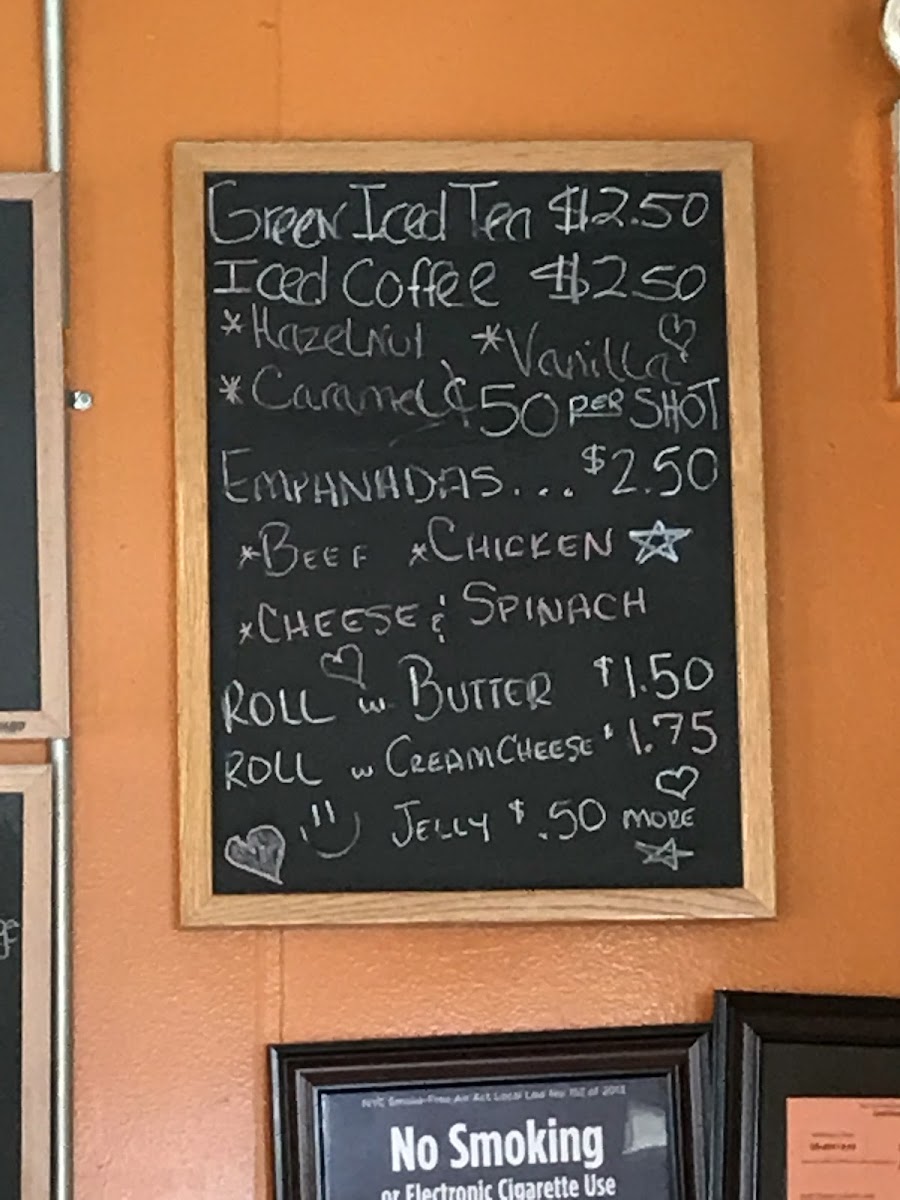 Green Iced Tea $2.50
Iced Coffee $2.50
*Hazelnut *Vanilla
*Caramel ¢50 PER SHOT
EMPANADAS... $2.50
*BEEF *CHICKEN
*CHEESE & SPINACH
ROLL w BUTTER $1.50
ROLL w CREAM CHEESE $1.75
JELLY $.50 MORE
NYC Smoke-Free Air Act Local Law No 152 of 2013
No Smoking
or Electronic Cigarette Use